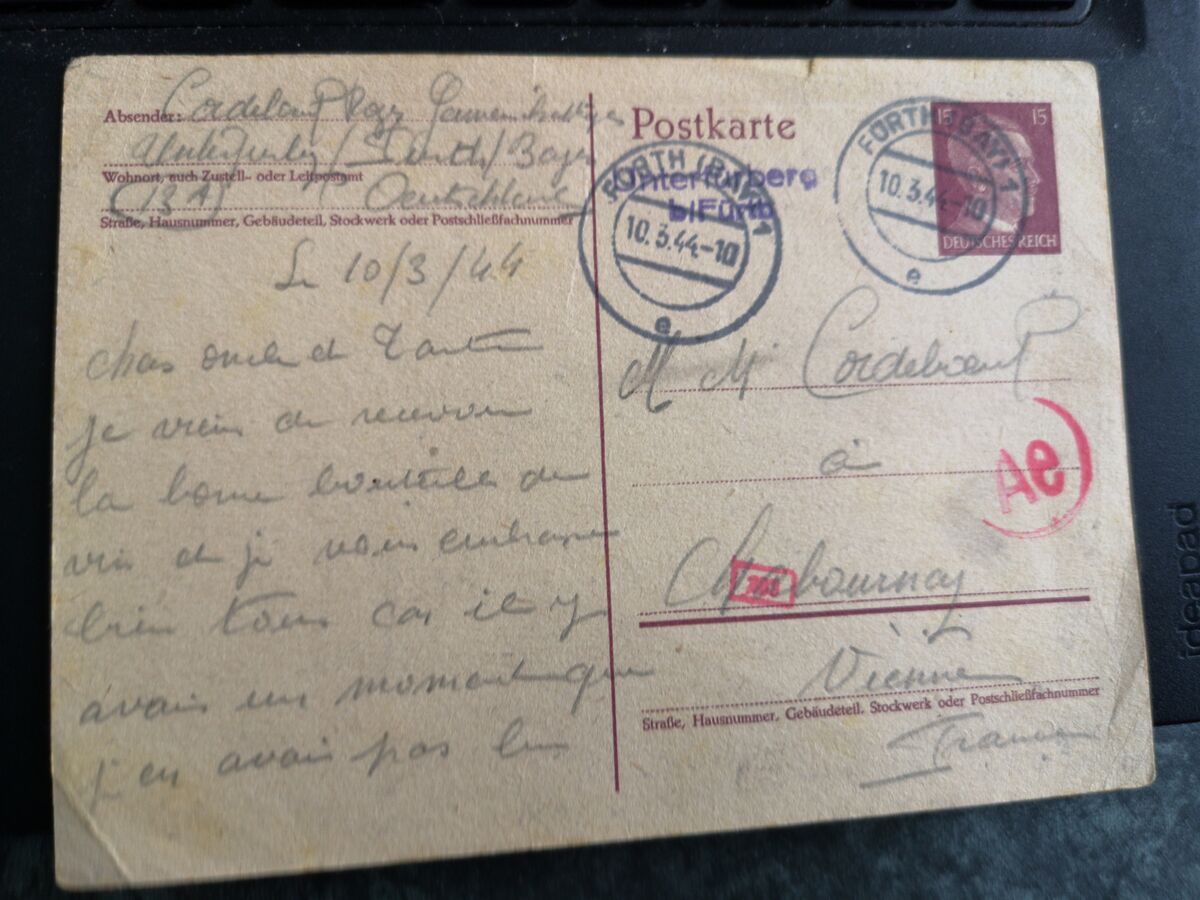 Absender: Cordeboeuf Roger
Unterfürberg / Fürth / Bayer
Wohnort, auch Zustell- oder Leitpostamt
(13A) Deutschland
Straße, Hausnummer, Gebäudeteil, Stockwerk oder Postschließfachnummer
Le 10/3/44
chers oncle et Tante
je viens de recevoir
la bonne bouteille de
vin et je vous embrasse
bien tous car il y
avais un moment que
j'en avais pas bu
Postkarte
Unterfürberg
b/Fürth
FÜRTH (BAY) 1
10.3.44-10
e
FÜRTH (BAY) 1
10.3.44-10
e
15 15
DEUTSCHES REICH
M M Cordeboeuf
à
Ae
Chabournay
Vienne
Straße, Hausnummer, Gebäudeteil, Stockwerk oder Postschließfachnummer
France
ideapad